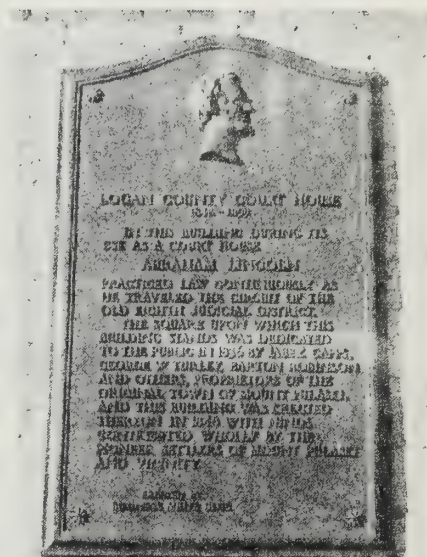 LOGAN COUNTY COURT HOUSE
IN THIS BUILDING DURING ITS
USE AS A COURT HOUSE
ABRAHAM LINCOLN
PRACTICED LAW CONTINUOUSLY AS
HE TRAVELED THE CIRCUIT OF THE
OLD EIGHTH JUDICIAL DISTRICT.
THE SQUARE UPON WHICH THIS
BUILDING STANDS WAS DEDICATED
TO THE PUBLIC IN 1836 BY JABEZ CAPPS,
GEORGE W. TURLEY, BARTON ROBINSON
AND OTHERS, PROPRIETORS OF THE
ORIGINAL TOWN OF MOUNT PULASKI,
AND THIS BUILDING WAS ERECTED
THEREON IN WITH FUNDS
CONTRIBUTED WHOLLY BY THE
PIONEER SETTLERS OF MOUNT PULASKI
AND VICINITY